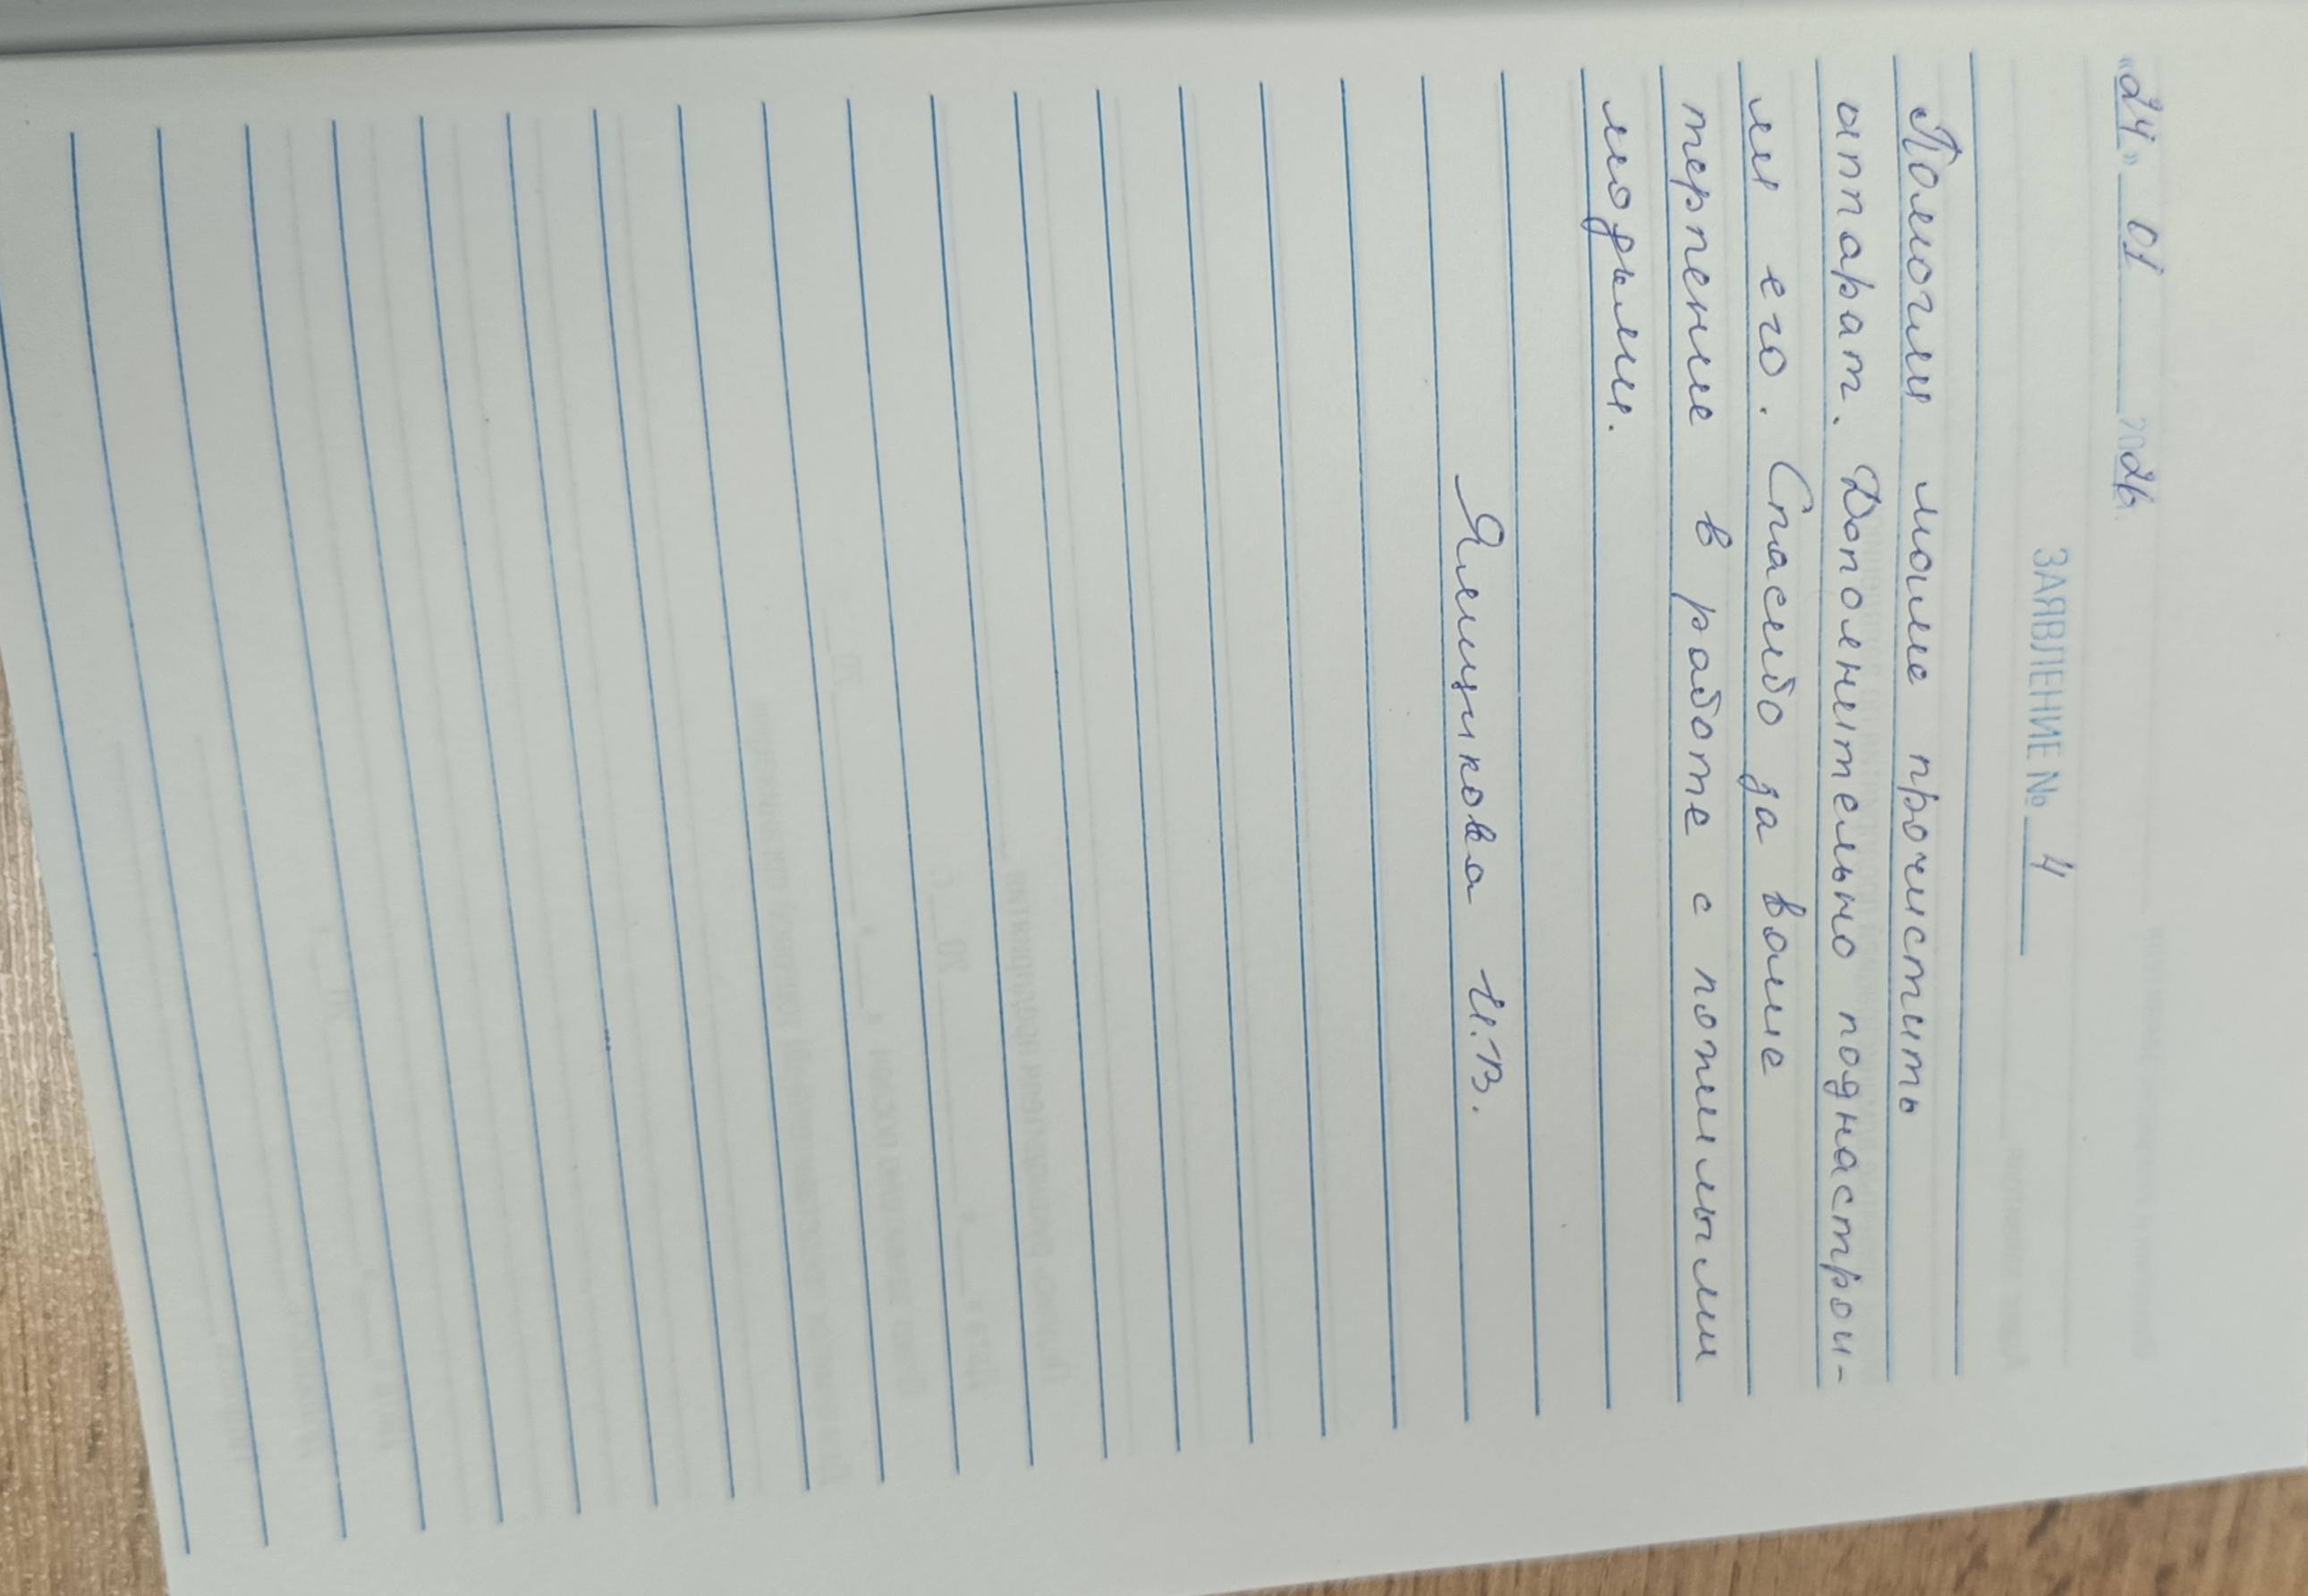 «24» 01 2026
ЗАЯВЛЕНИЕ № 4
Помогли моме прочистить
аппарат. Дополнительно поднастрои-
ли его. Спасибо за воше
терпение в работе с пожилыми
людьми.
Ямщикова И.В.